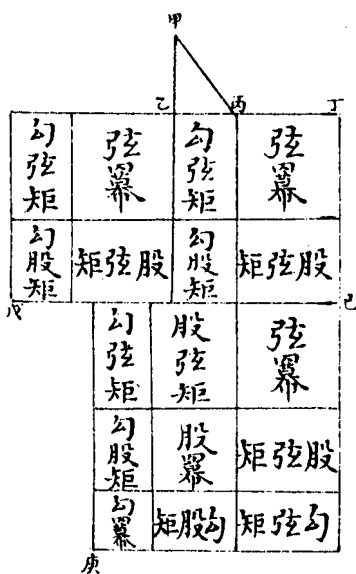 甲
乙 丙 丁
勾弦矩 弦冪 勾弦矩 弦冪
勾股矩 矩弦股 勾股矩 矩弦股
戊 己
勾弦矩 股弦矩 弦冪
勾股矩 股冪 矩弦股
勾冪 矩股勾 矩弦勾
庚